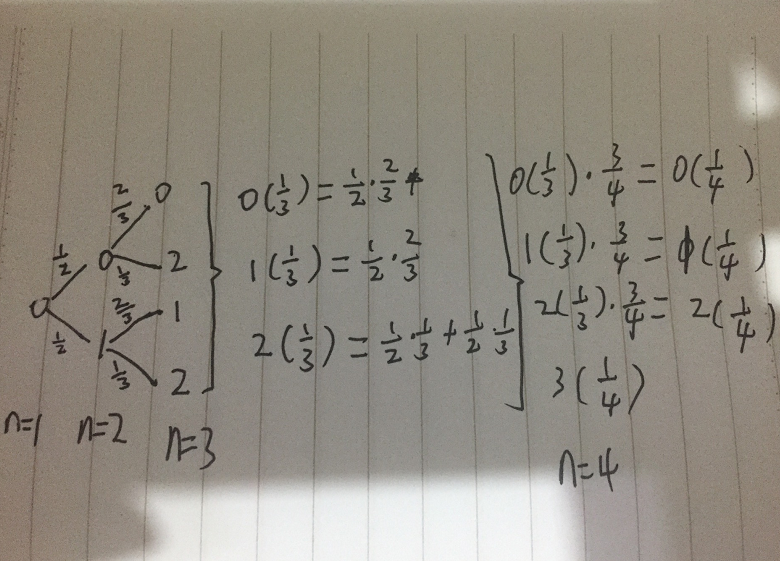 2/3 0
1/2 0 1/3 2
0 2/3 1
1/2 1 1/3 2
n=1 n=2 n=3
0(1/3) = 1/2 · 2/3
1(1/3) = 1/2 · 2/3
2(1/3) = 1/2 · 1/3 + 1/2 · 1/3
0(1/3) · 3/4 = 0(1/4)
1(1/3) · 3/4 = 1(1/4)
2(1/3) · 3/4 = 2(1/4)
3(1/4)
n=4